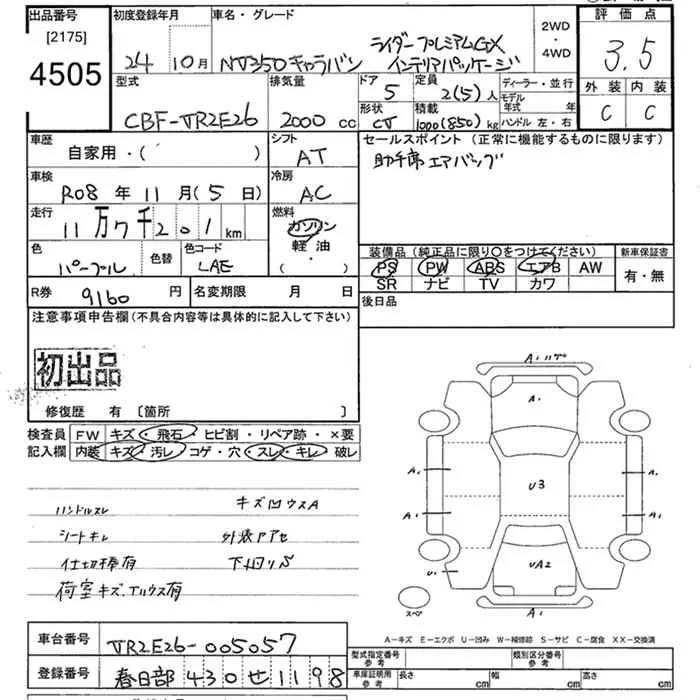 出品番号
[2175]
4505
初度登録年月
24 10月
車名・グレード
NV350キャラバン
ライダープレミアムGX
インテリアパッケージ
2WD
・
4WD
評価点
3.5
外装 内装
C C
型式
CBF-VR2E26
排気量
2000 cc
ドア
5
定員
2(5)人
ディーラー・並行
モデル年式 年
形状
CV
積載
1000(850)kg
ハンドル 左・右
車歴
自家用・( )
シフト
AT
セールスポイント(正常に機能するものに限ります)
助手席エアバッグ
車検
R08年11月(5日)
冷房
AC
走行
11万7千201km
燃料
ガソリン
軽油
・
( )
色
パープル
色替
色コード
LAE
装備品(純正品に限り〇をつけてください)
PS PW ABS エアB AW
SR ナビ TV カワ
新車保証書
有・無
R券 9160円
名変期限 月 日
後日品
注意事項申告欄(不具合内容等は具体的に記入して下さい)
初出品
修復歴 有 [箇所 ]
検査員記入欄
FW キズ・飛石・ヒビ割・リペア跡・×要
内装 キズ・汚レ・コゲ・穴・スレ・キレ・破レ
ハンドルスレ キズ凹ウスA
シートキレ 外装アアセ
仕切棒有 下回りS
荷室キズ、
A1
A1
U3
UA2
A1
A1
A1
A1
A1
U1
スペア
A1
A-キズ E-エクボ U-凹み W-補修跡 S-サビ C-腐食 XX-交換済
車台番号
VR2E26-005057
登録番号
春日部 430 せ 1198
型式指定番号
参考
類別区分番号
参考
車庫証明用
参考
長さ cm 幅 cm 高さ cm